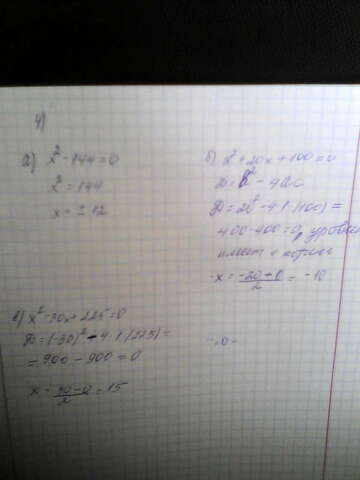 4)
а) x² - 144 = 0
x² = 144
x = ± 12
б) x² + 20x + 100 = 0
D = b² - 4ac
D = 20² - 4·1·(100) =
400 - 400 = 0, уравн
имеет 1 корень
x = -20+0/2 = -10
в) x² - 30x + 225 = 0
D = (-30)² - 4·1·(225) =
= 900 - 900 = 0
x = 30-0/2 = 15